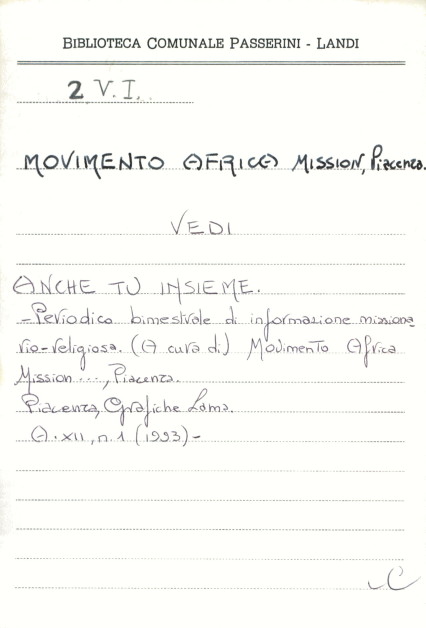 BIBLIOTECA COMUNALE PASSERINI - LANDI
2 V. I.
MOVIMENTO AFRICA MISSION, Piacenza.
VEDI
ANCHE TU INSIEME.
-Periodico bimestrale di informazione missiona
rio-religiosa. (A cura di) Movimento Africa
Mission ..., Piacenza.
Piacenza, Grafiche Lama.
A. XII, n. 1 (1993) -